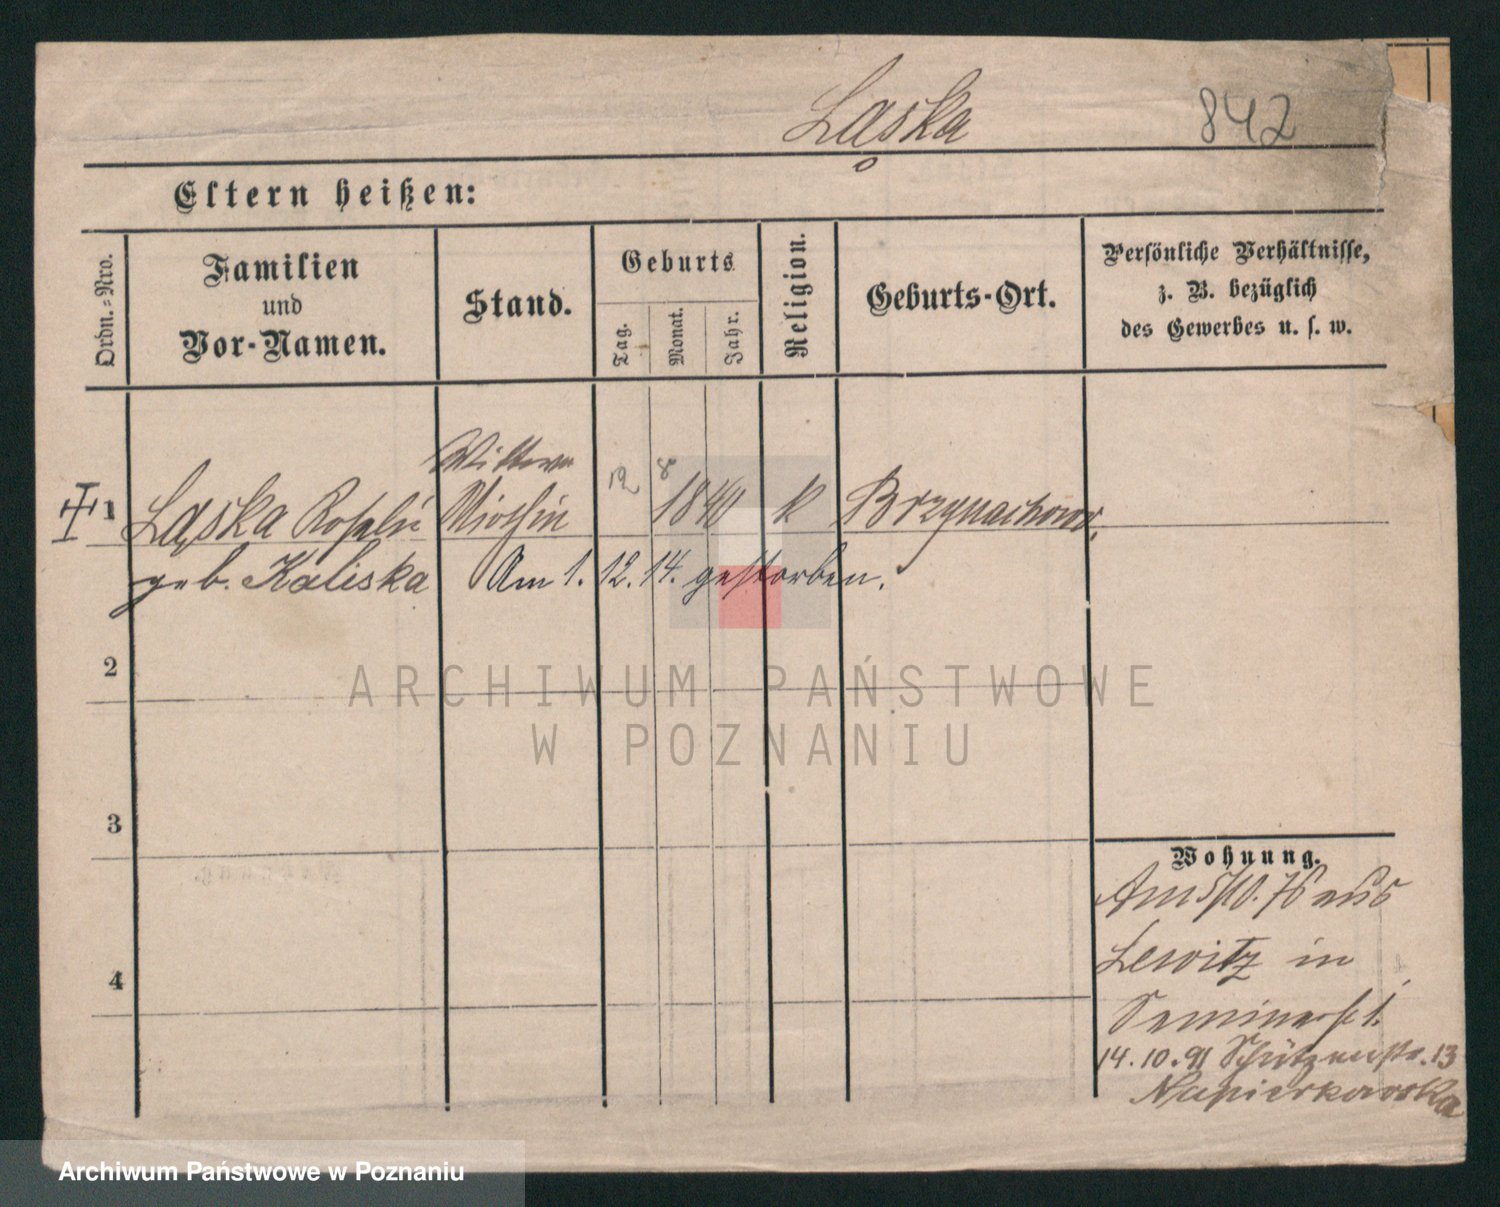 Ląska 842
Eltern heißen:
Ordn.=Nro.
Familien
und
Vor-Namen.
Stand.
Geburts
Tag.
Monat.
Jahr.
Religion.
Geburts-Ort.
Persönliche Verhältnisse,
z. B. bezüglich
des Gewerbes u. s. w.
Wittwe
1 Ląska Rosalie 8 1840 k
geb. Kaliska Am 1. 12. 14. gestorben.
2
3
4
Wohnung.
Am 5/10. 76 aus
Lewitz in
Seminarst 1.
14.10.91 Schützenstr. 13
Napierkowska
ARCHIWUM PAŃSTWOWE
W POZNANIU
Archiwum Państwowe w Poznaniu